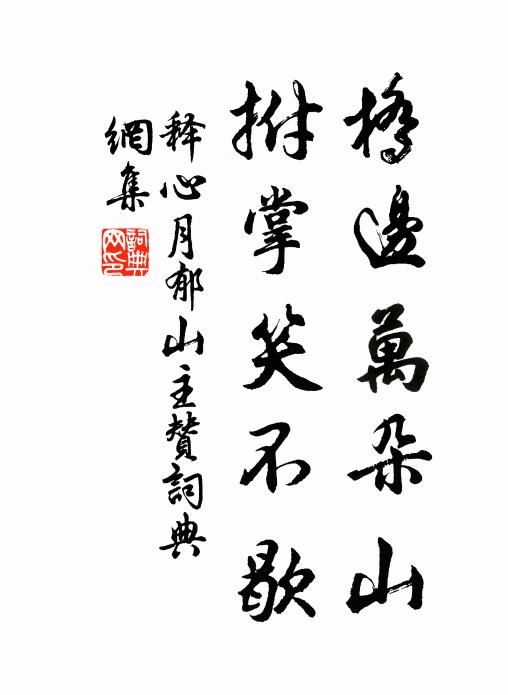 橋邊萬朵山
拊掌笑不歇
释心月郁山主赞詞典
網集
詞典網印